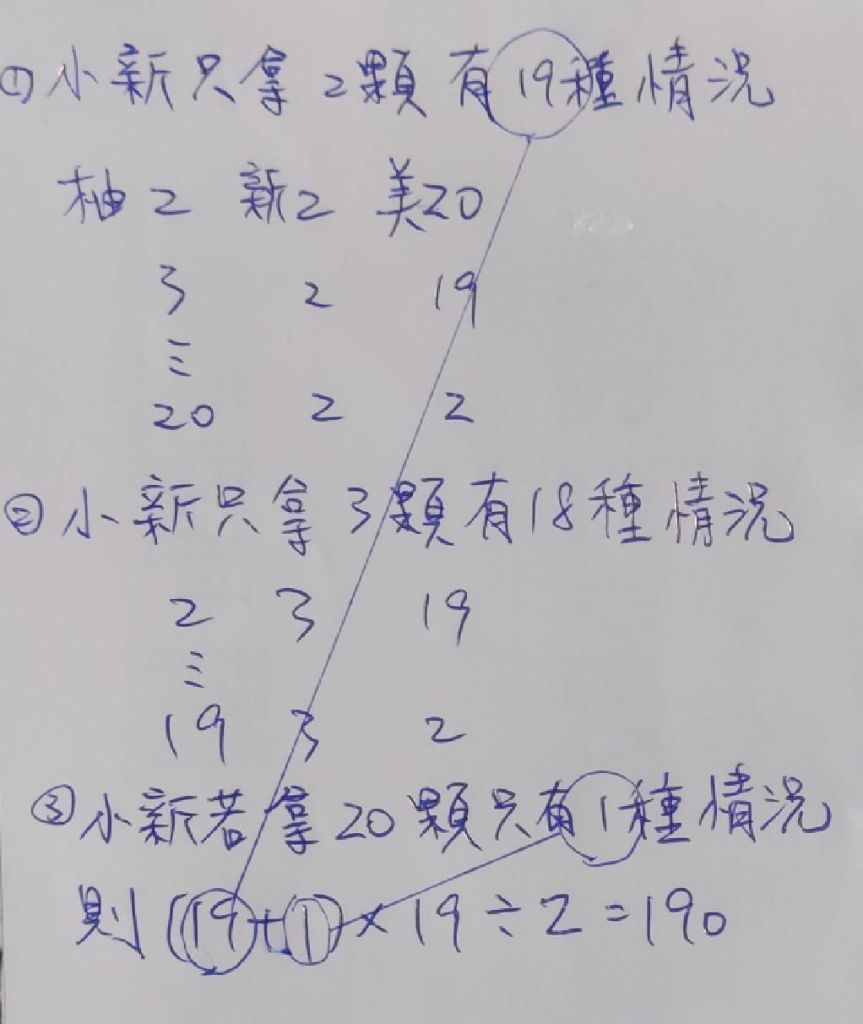 ① 小新只拿2顆有19種情況
柚2 新2 美20
3 2 19
⋮
20 2 2
② 小新只拿3顆有18種情況
2 3 19
⋮
19 3 2
③ 小新若拿20顆只有1種情況
則(19+1)×19÷2=190